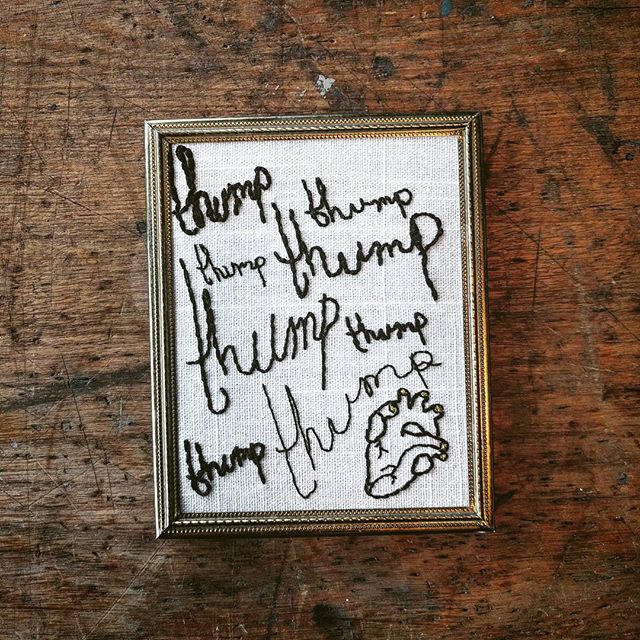 thump
thump
thump
thump
thump
thump
thump
thump